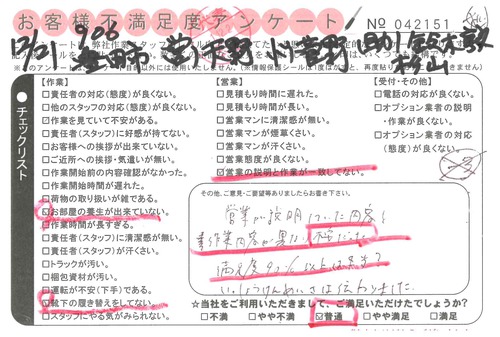 お客様不満足度アンケート
NO 042151
12/21 9:00
【作業】
□責任者の対応(態度)が良くない。
□他のスタッフの対応(態度)が良くない。
☑作業を見ていて不安がある。
□責任者(スタッフ)に好感が持てない。
□お客様への挨拶が出来ていない。
□ご近所への挨拶・気遣いが無い。
□作業開始前の内容確認がなかった。
□作業開始時間が遅れた。
□荷物の取り扱いが雑である。
☑お部屋の養生が出来ていない。
□作業時間が長すぎる。
□責任者(スタッフ)に清潔感が無い。
□責任者(スタッフ)が汗くさい。
□トラックが汚い。
□梱包資材が汚い。
□運転が不安(下手)である。
☑靴下の履き替えをしてない。
□スタッフにやる気がみられない。
【営業】
□見積もり時間に遅れた。
□見積もり時間が長い。
□営業マンに清潔感が無い。
□営業マンが煙草くさい。
□営業マンが汗くさい。
□営業態度が良くない。
☑営業の説明と作業が一致してない。
【受付・その他】
□電話の対応が良くない。
□オプション業者の説明
・作業が良くない。
□オプション業者の対応
(態度)が良くない。
チェックリスト
その他、ご意見・ご要望等ありましたらお書き下さい。
営業が説明していた内容と
作業内容が異なり不安だった。
いっしょうけんめいさは伝わりました。
☆当社をご利用いただきまして、ご満足いただけたでしょうか?
□不満 □やや不満 ☑普通 □やや満足 □満足